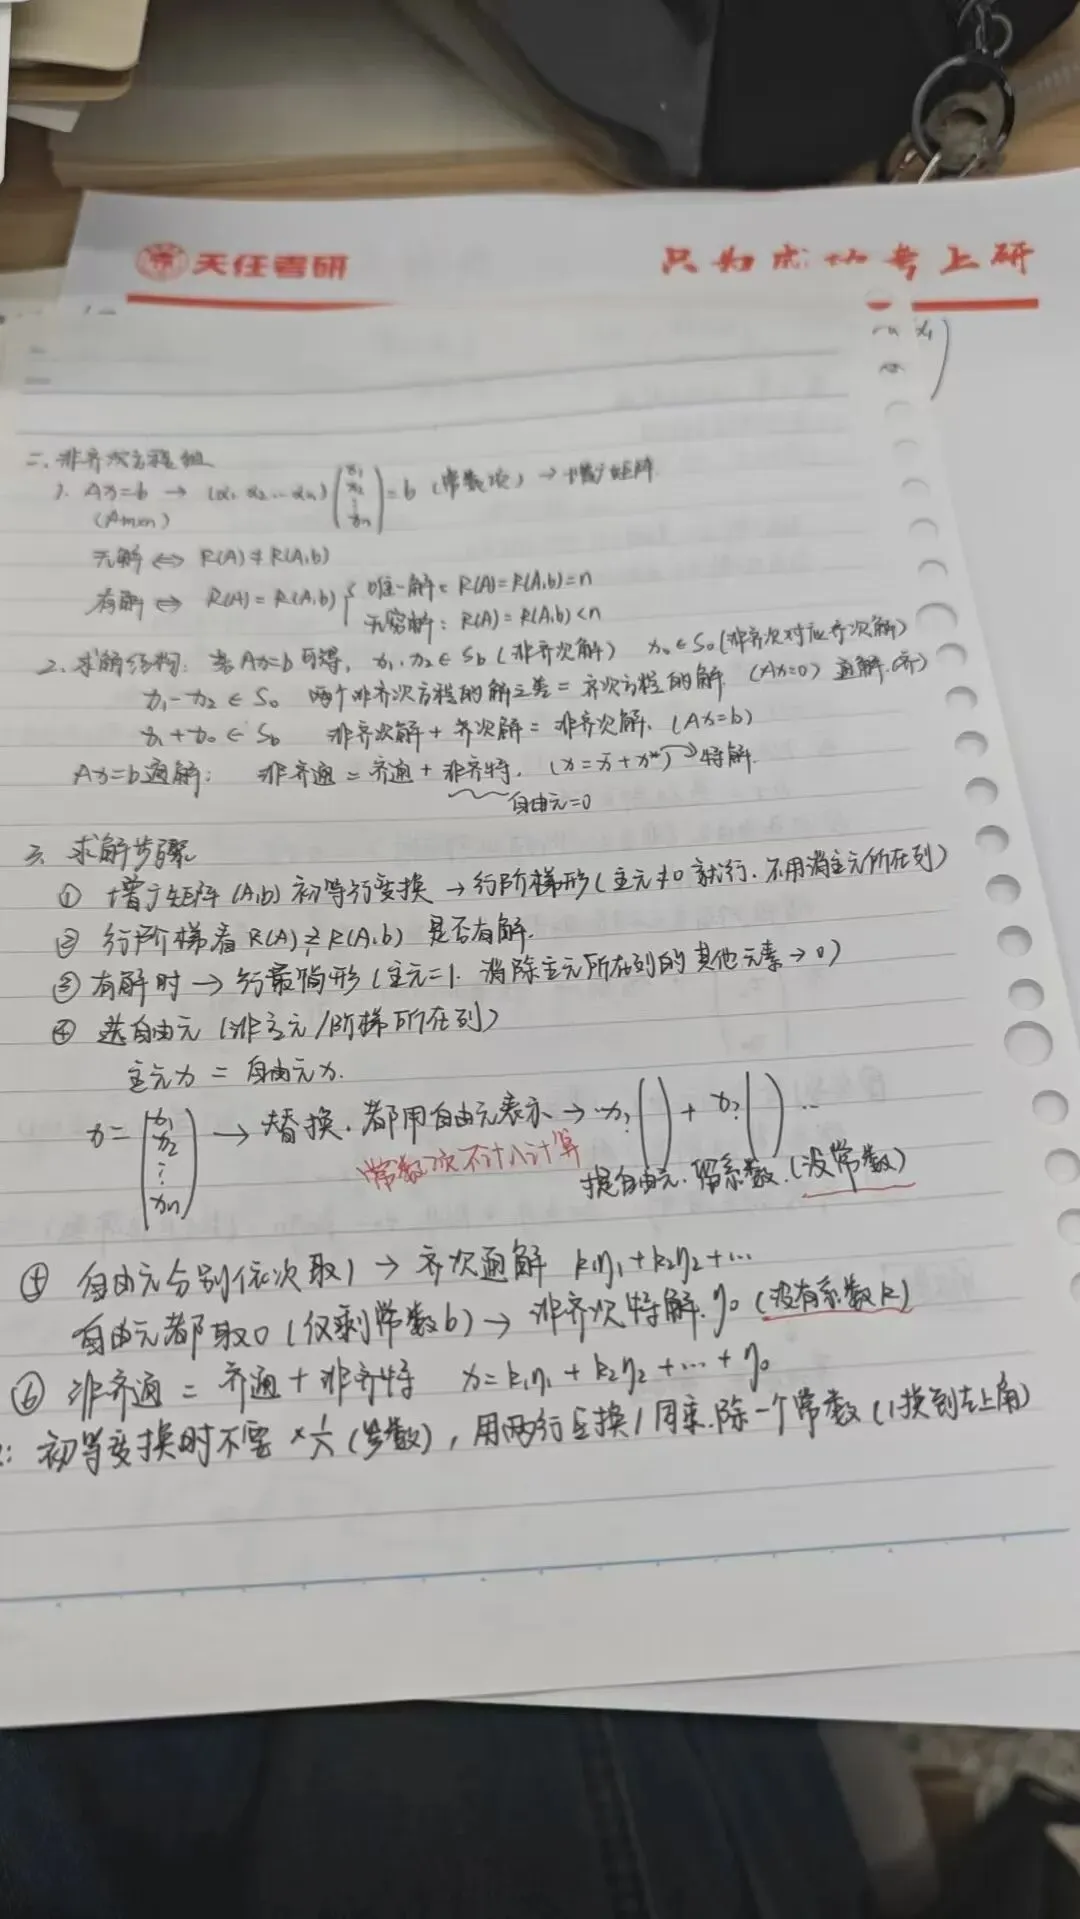 天任考研
只为成功考上研
x₁
二、非齐次方程组
1. Ax=b → (α₁ α₂ … αn) (x₁ x₂ ⋮ xn) = b (常数项) → 增广矩阵
(Am×n)
无解 ⇔ R(A) ≠ R(A,b)
有解 ⇔ R(A) = R(A,b) { 唯一解: R(A)=R(A,b)=n
无穷解: R(A)=R(A,b)<n
2. 求解结构: 当Ax=b可得, x₁, x₂ ∈ Sb (非齐次解) x₀ ∈ S₀ (非齐次对应齐次解)
x₁-x₂ ∈ S₀ 两个非齐次方程的解之差 = 齐次方程的解. (Ax=0) 通解(齐)
x₁+x₀ ∈ Sb 非齐次解 + 齐次解 = 非齐次解. (Ax=b)
Ax=b通解: 非齐通 = 齐通 + 非齐特. (x = x̄ + x*) → 特解.
自由元=0
三 求解步骤
① 增广矩阵 (A,b) 初等行变换 → 行阶梯形 (主元≠0就行. 不用消主元所在列)
② 行阶梯看 R(A) ≥ R(A,b) 是否有解.
③ 有解时 → 行最简形 (主元=1. 消除主元所在列的其他元素→0)
④ 选自由元 (非主元/阶梯所在列)
主元x = 自由元x.
x = (x₁ x₂ ⋮ xn) → 替换. 都用自由元表示 → x?( ) + x?( ) …
常数项不计入计算
提自由元. 留系数. (没常数)
⑤ 自由元分别依次取1 → 齐次通解 k₁η₁+k₂η₂+…
自由元都取0 (仅剩常数b) → 非齐次特解. η₀ (没有系数k)
⑥ 非齐通 = 齐通 + 非齐特 x=k₁η₁ + k₂η₂ +… + η₀
: 初等变换时不要 (分数), 用两行互换/同乘.除一个常数 (1换到左上角)